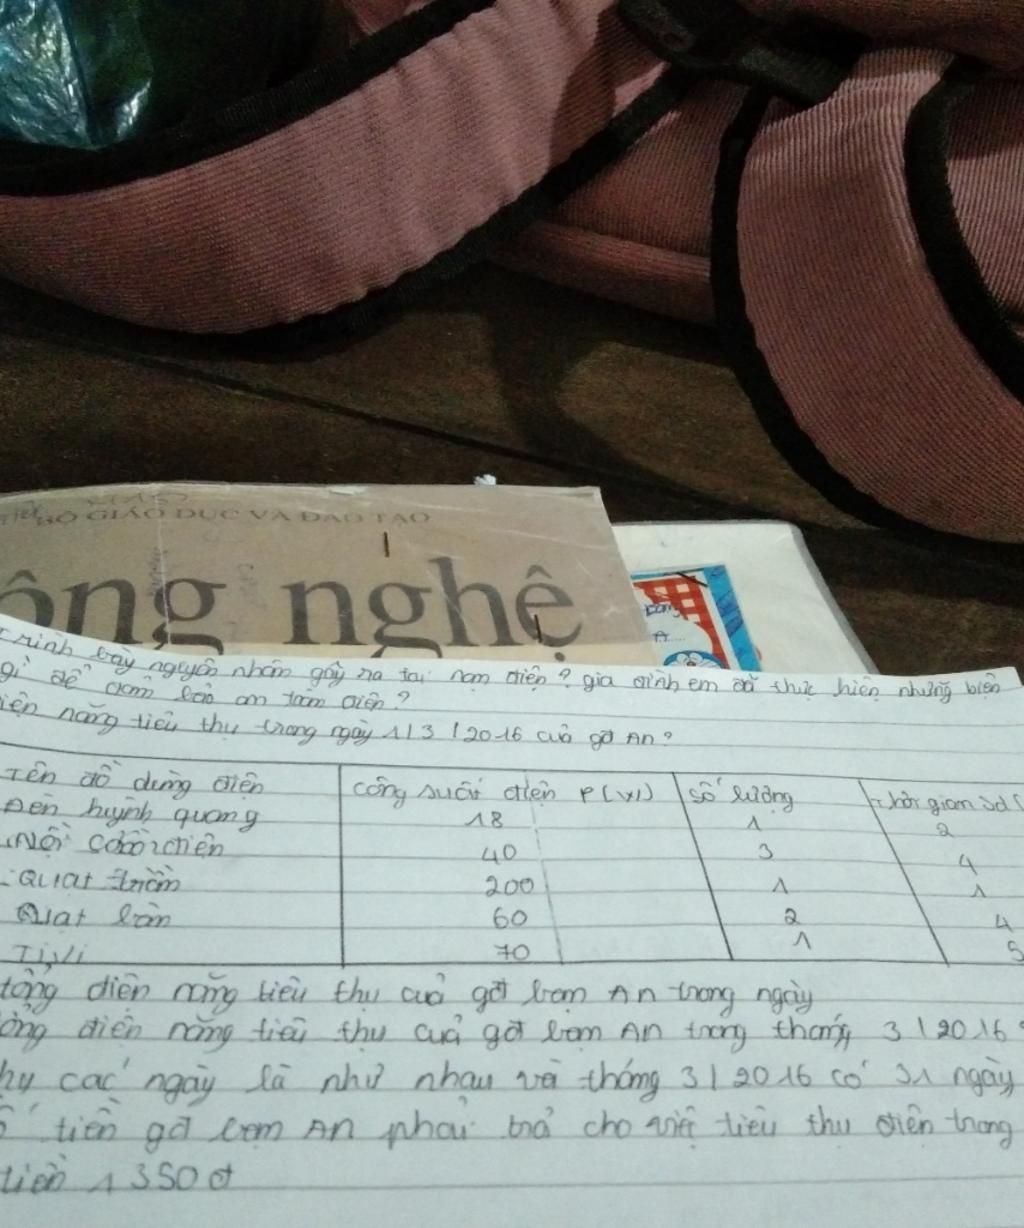 BỘ GIÁO DỤC VÀ ĐÀO TẠO
ông nghệ
Trình bày nguyên nhân gây ra tai nạn điện? gia đình em đã thực hiện những biện
gì để đảm bảo an toàn điện?
iện năng tiêu thụ trong ngày 1/3/2016 của gđ An?
Tên đồ dùng điện công suất điện P(W) Số lượng Thời gian sd(
Đèn huỳnh quang 18 1 2
Nồi cơm điện 40 3 4
Quạt trần 200 1 1
Quạt bàn 60 2 4
Tivi 70 1 5
tổng điện năng tiêu thụ của gđ bạn An trong ngày
ổng điện năng tiêu thụ của gđ bạn An trong tháng 3/2016
hụ các ngày là như nhau và tháng 3/2016 có 31 ngày
ố tiền gđ bạn An phải trả cho việc tiêu thụ điện trong
tiền 1350đ